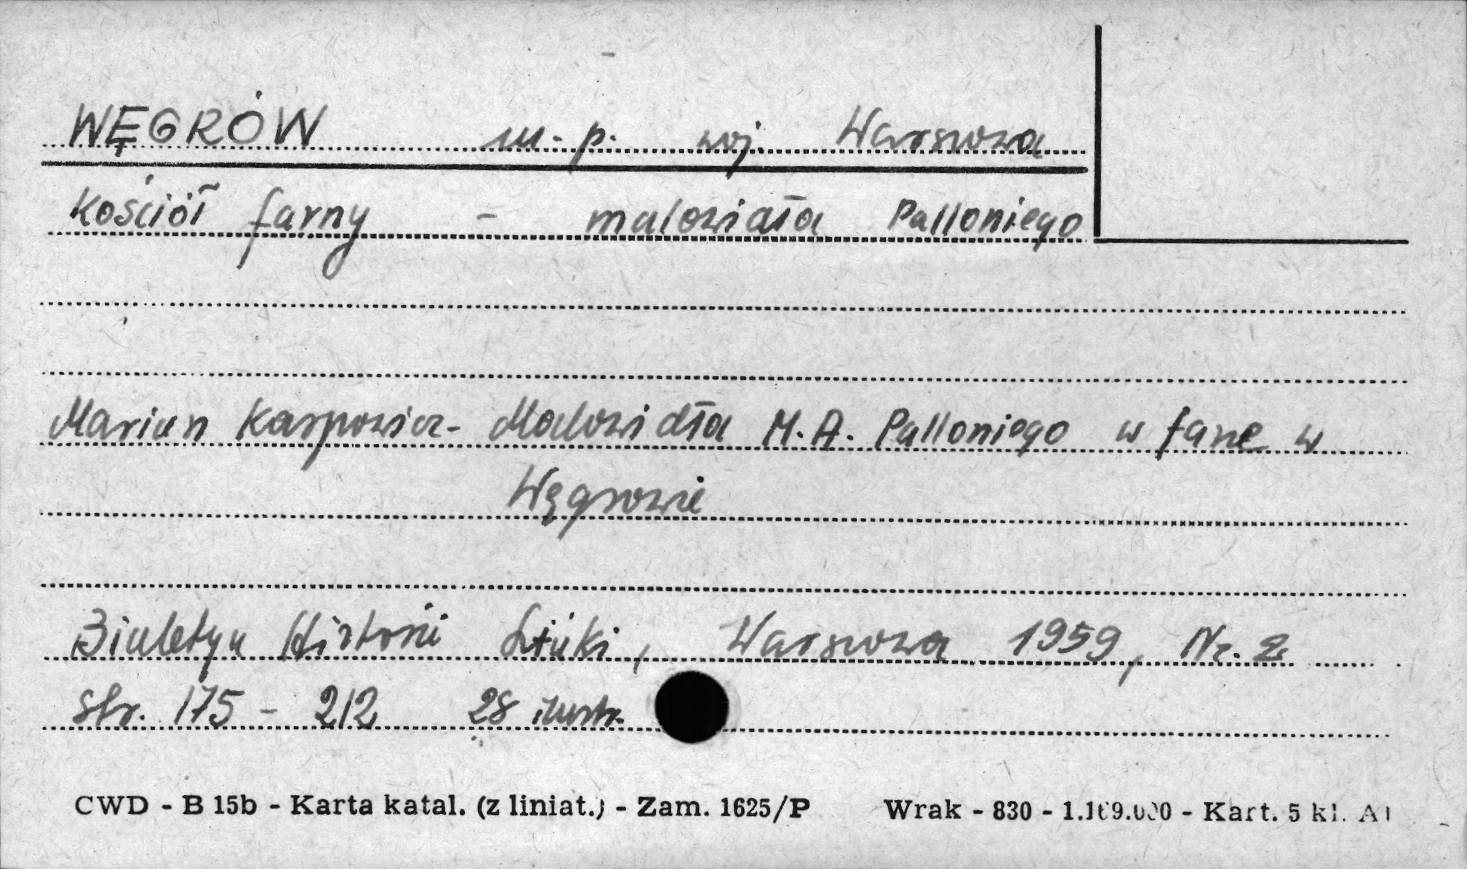 WĘGRÓW m. p. woj. Warszawa
kościół farny - malowidła Palloniego
Marian Karpowicz - Malowidła M. A. Palloniego w farze w
Węgrowie
Biuletyn Historii Sztuki, Warszawa 1959, Nr. 2
str. 175 - 212 28 ilustr.
CWD - B 15b - Karta katal. (z liniat.) - Zam. 1625/P Wrak - 830 - Kart. 5 kl. A1